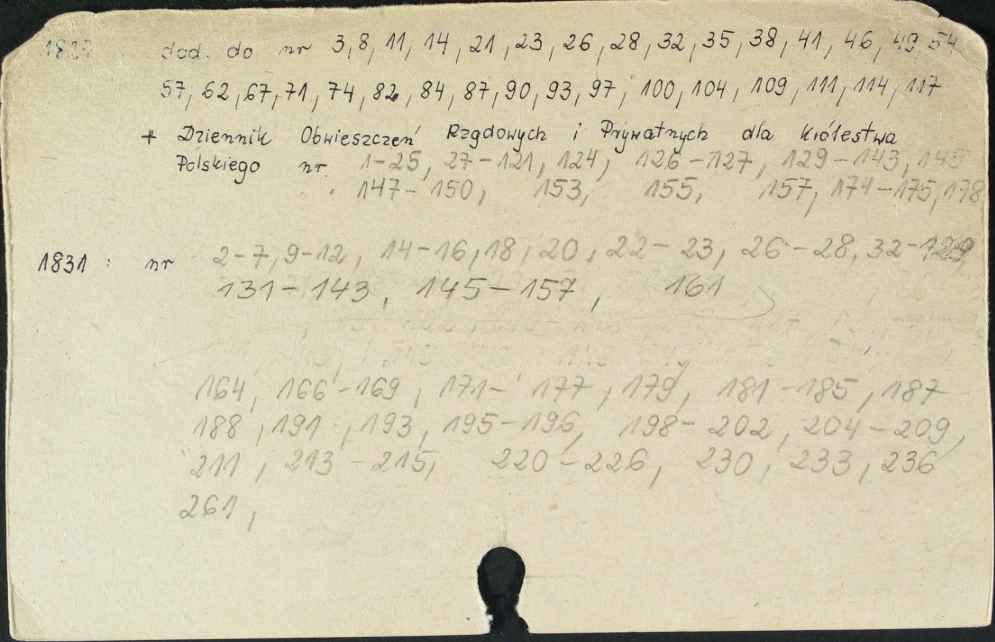 dod. do nr 3, 8, 11, 14, 21, 23, 26, 28, 32, 35, 38, 41, 46, 49, 54
57, 62, 67, 71, 74, 82, 84, 87, 90, 93, 97, 100, 104, 109, 111, 114, 117
+ Dziennik Obwieszczeń Rządowych i Prywatnych dla Królestwa
Polskiego nr 1-25, 27-121, 124, 126-127, 129-143, 145
147-150, 153, 155, 157, 174-175, 178
1831: nr 2-7, 9-12, 14-16, 18, 20, 22-23, 26-28, 32-129,
131-143, 145-157, 161
164, 166-169, 171-177, 179, 181-185, 187
188, 191, 193, 195-196, 198-202, 204-209,
211, 213-215, 220-226, 230, 233, 236
261,